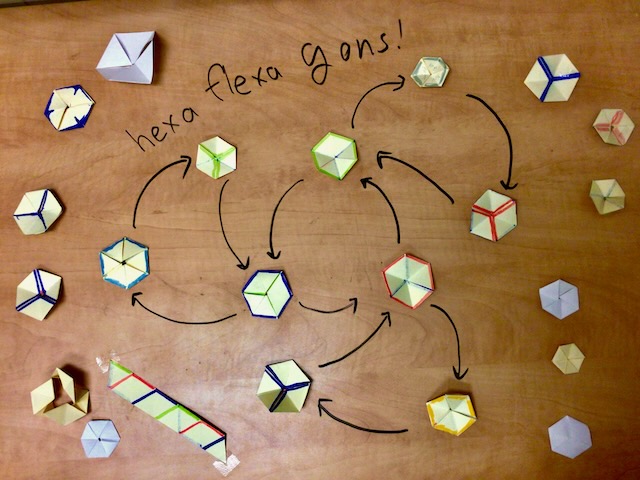 hexa flexa gons!